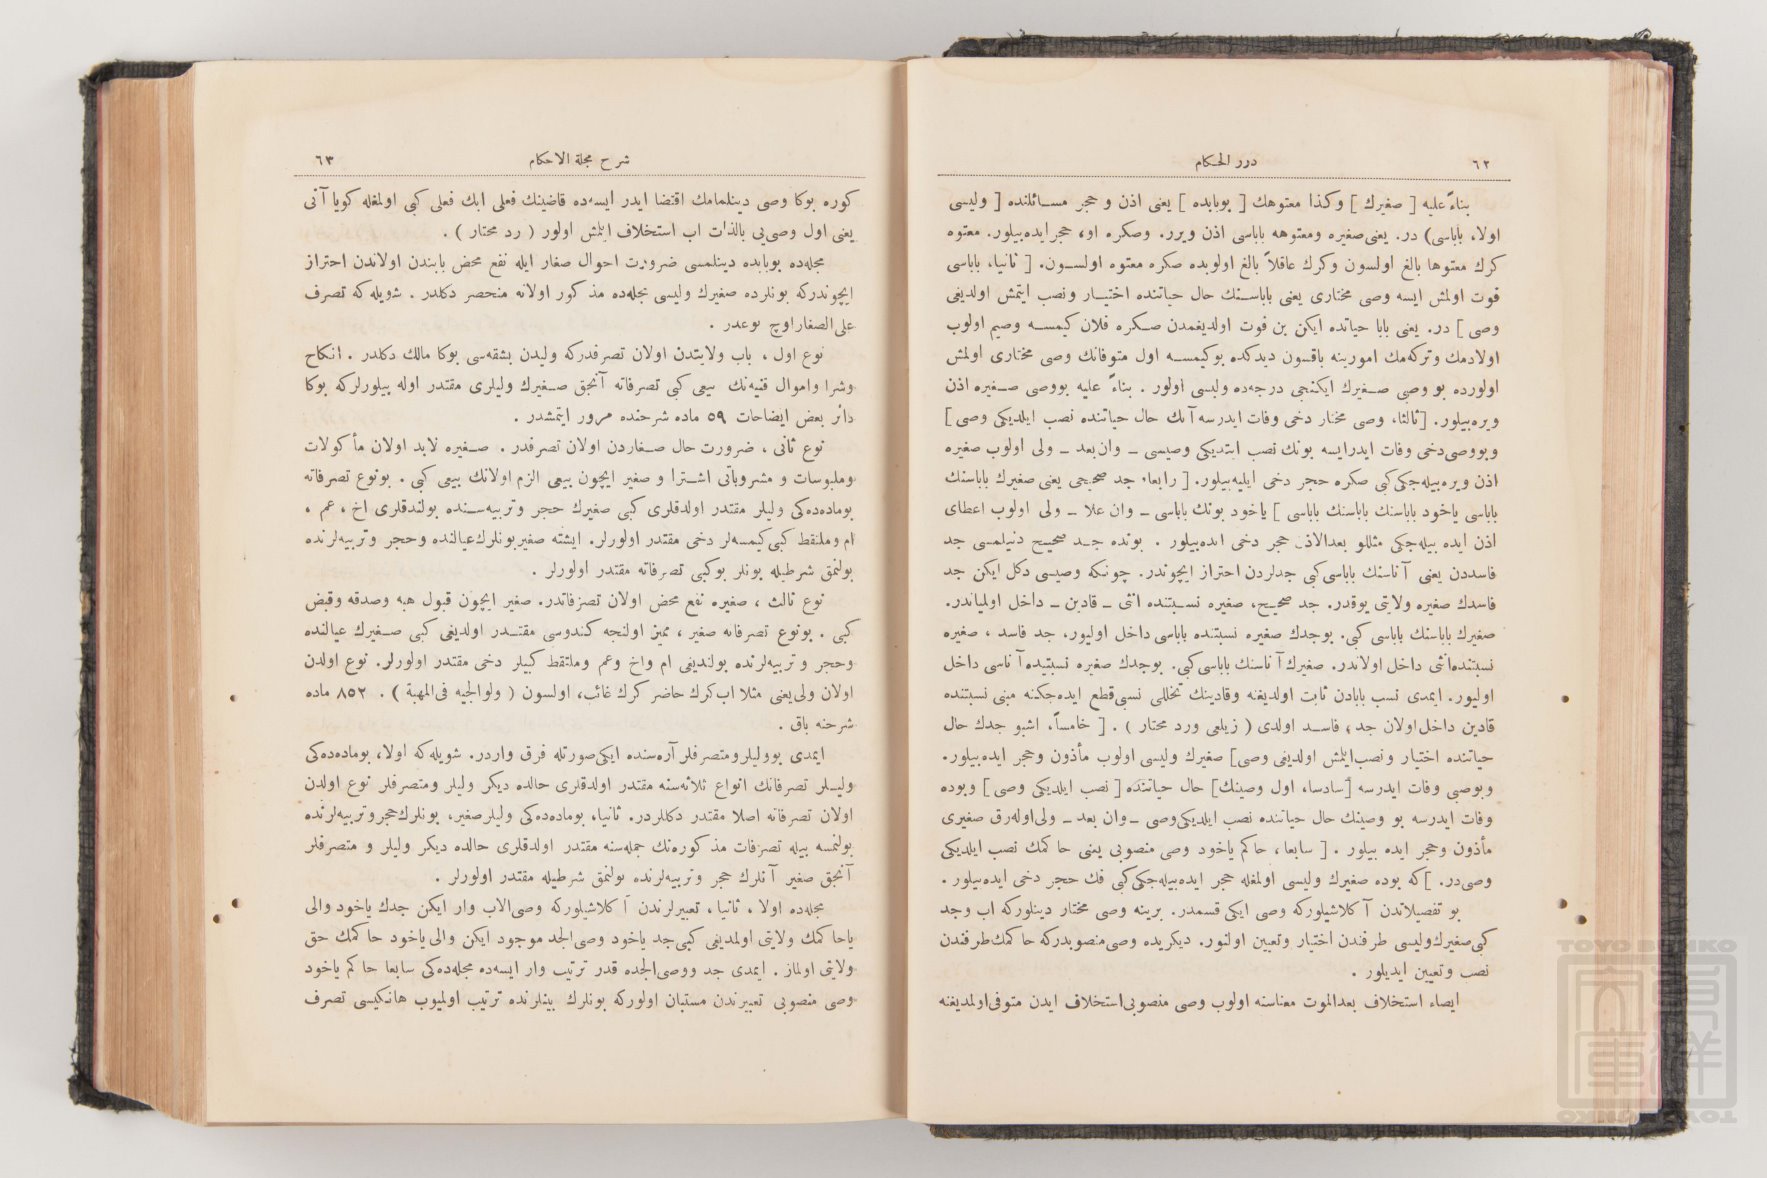 ٦٢
درر الحكام
بناءً عليه [ صغيرك ] وكذا معتوهك [ بوبابده ] يعنى اذن و حجر مسائلنده [ وليسى
اولا، باباسى) در. يعنى صغيره ومعتوهه باباسى اذن ويرر. وصكره او، حجر ايده بيلور. معتوه
كرك معتوها بالغ اولسون وكرك عاقلاً بالغ اولوبده صكره معتوه اولسون. [ ثانيا، باباسى
فوت اولمش ايسه وصى مختارى يعنى باباسنك حال حياتنده اختيار ونصب ايتمش اولديغى
وصى ] در. يعنى بابا حياتده ايكن بن فوت اولديغمدن صكره فلان كيمسه وصيم اولوب
اولادمك وتركه‌مك امورينه باقسون ديدكده بوكيمسه اول متوفانك وصى مختارى اولمش
اولورده بو وصى صغيرك ايكنجى درجه‌ده وليسى اولور . بناءً عليه بووصى صغيره اذن
ويره بيلور. [ثالثا، وصى مختار دخى وفات ايدرسه آنك حال حياتنده نصب ايلديكى وصى ]
وبووصى دخى وفات ايدرايسه بونك نصب ايتديكى وصيسى ـ وان بعد ـ ولى اولوب صغيره
اذن ويره بيله جكى كبى صكره حجر دخى ايليه بيلور. [ رابعا، جد صحيحى يعنى صغيرك باباسنك
باباسى ياخود باباسنك باباسنك باباسى ] ياخود بونك باباسى ـ وان علا ـ ولى اولوب اعطاى
اذن ايده بيله جكى مثللو بعدالاذن حجر دخى ايده بيلور . بونده جد صحيح دنيلمسى جد
فاسددن يعنى آناسنك باباسى كبى جدلردن احتراز ايچوندر. چونكه وصيسى دكل ايكن جد
فاسدك صغيره ولايتى يوقدر. جد صحيح، صغيره نسبتنده انثى ـ قادين ـ داخل اولمياندر.
صغيرك باباسنك باباسى كبى. بوجدك صغيره نسبتنده باباسى داخل اوليور، جد فاسد ، صغيره
نسبتنده انثى داخل اولاندر. صغيرك آناسنك باباسى كبى. بوجدك صغيره نسبتيده آناسى داخل
اوليور. ايمدى نسب بابادن ثابت اولديغنه وقادينك تخللى نسبى قطع ايده جكنه مبنى نسبتنده
قادين داخل اولان جد ، فاسد اولدى ( زيلعى ورد محتار ) . [ خامساً، اشبو جدك حال
حياتنده اختيار ونصب ايلمش اولديغى وصى] صغيرك وليسى اولوب مأذون وحجر ايده بيلور.
وبوصى وفات ايدرسه [سادسا، اول وصينك] حال حياتنده [ نصب ايلديكى وصى ] وبوده
وفات ايدرسه بو وصينك حال حياتنده نصب ايلديكى وصى ـ وان بعد ـ ولى اوله رق صغيرى
مأذون وحجر ايده بيلور . [ سابعا ، حاكم ياخود وصى منصوبى يعنى حاكمك نصب ايلديكى
وصى در. ] كه بوده صغيرك وليسى اولمغله حجر ايده بيله جكى كبى فك حجر دخى ايده بيلور .
بو تفصيلاتدن آكلاشيلوركه وصى ايكى قسمدر. برينه وصى مختار دينلوركه اب وجد
كبى صغيرك وليسى طرفندن اختيار وتعيين اولنور. ديكريده وصى منصوبدركه حاكمك طرفندن
نصب وتعيين ايديلور .
ايصاء استخلاف بعدالموت معناسنه اولوب وصى منصوبى استخلاف ايدن متوفى اولمديغنه
شرح مجلة الاحكام
٦٣
كوره بوكا وصى دينلمامك اقتضا ايدر ايسه‌ده قاضينك فعلى ابك فعلى كبى اولمغله كويا آنى
يعنى اول وصى يى بالذات اب استخلاف ايلمش اولور ( رد محتار ) .
مجله‌ده بوبابده دينلمسى ضرورت احوال صغار ايله نفع محض بابندن اولاندن احتراز
ايچوندركه بونلرده صغيرك وليسى مجله‌ده مذكور اولانه منحصر دكلدر . شويله كه تصرف
على الصغار اوچ نوعدر .
نوع اول ، باب ولايتدن اولان تصرفدركه وليدن بشقه‌سى بوكا مالك دكلدر . انكاح
وشرا واموال قنيه‌نك بيعى كبى تصرفاته آنجق صغيرك وليلرى مقتدر اوله بيلورلركه بوكا
دائر بعض ايضاحات ٥٩ ماده شرحنده مرور ايتمشدر .
نوع ثانى ، ضرورت حال صغاردن اولان تصرفدر . صغيره لابد اولان مأكولات
وملبوسات و مشروباتى اشترا و صغير ايچون بيعى الزم اولانك بيعى كبى . بونوع تصرفاته
بوماده‌ده كى وليلر مقتدر اولدقلرى كبى صغيرك حجر وتربيه‌سنده بولندقلرى اخ ، عم ،
ام وملتقط كبى كيمسه‌لر دخى مقتدر اولورلر. ايشته صغير بونلرك عيالنده وحجر وتربيه‌لرنده
بولنمق شرطيله بونلر بوكبى تصرفاته مقتدر اولورلر .
نوع ثالث ، صغيره نفع محض اولان تصرفاتدر. صغير ايچون قبول هبه وصدقه وقبض
كبى . بونوع تصرفاته صغير ، مميز اولنجه كندوسى مقتدر اولديغى كبى صغيرك عيالنده
وحجر و تربيه‌لرنده بولنديغى ام واخ وعم وملتقط كبيلر دخى مقتدر اولورلر. نوع اولدن
اولان ولى يعنى مثلا اب كرك حاضر كرك غائب، اولسون ( ولوالجيه فى الهبة ) . ٨٥٢ ماده
شرحنه باق .
ايمدى بووليلر ومتصرفلر آره‌سنده ايكى صورتله فرق واردر. شويله كه اولا، بوماده‌ده كى
وليلر تصرفاتك انواع ثلاثه‌سنه مقتدر اولدقلرى حالده ديكر وليلر ومتصرفلر نوع اولدن
اولان تصرفاته اصلا مقتدر دكللردر. ثانيا، بوماده‌ده كى وليلر صغير، بونلرك حجر وتربيه‌لرنده
بولنمسه بيله تصرفات مذكوره‌نك جمله‌سنه مقتدر اولدقلرى حالده ديكر وليلر و متصرفلر
آنجق صغير آنلرك حجر وتربيه‌لرنده بولنمق شرطيله مقتدر اولورلر .
مجله‌ده اولا ، ثانيا ، تعبيرلرندن آكلاشيلوركه وصى الاب وار ايكن جدك ياخود والى
ياحاكمك ولايتى اولمديغى كبى جد ياخود وصى الجد موجود ايكن والى ياخود حاكمك حق
ولايتى اولماز . ايمدى جد ووصى الجده قدر ترتيب وار ايسه‌ده مجله‌ده كى سابعا حاكم ياخود
وصى منصوبى تعبيرندن مستبان اولوركه بونلرك بينلرنده ترتيب اولميوب هانكيسى تصرف